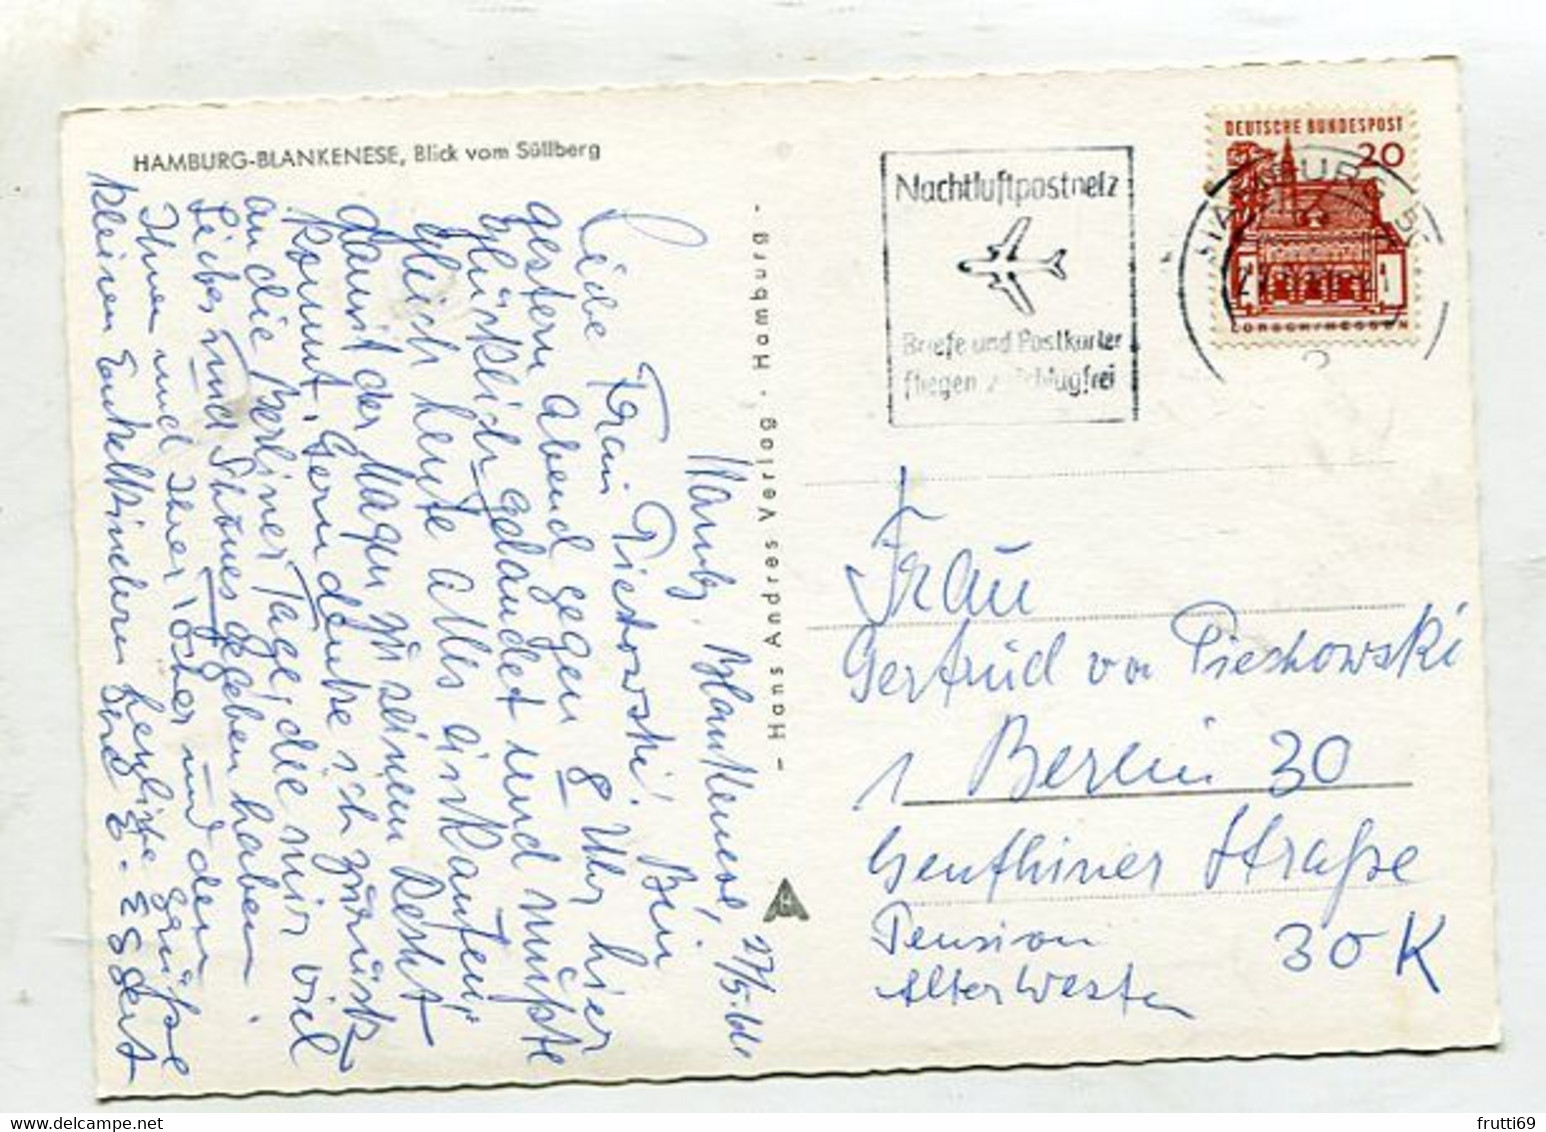 HAMBURG-BLANKENESE, Blick vom Süllberg
Hambg. Blankenese, 27/5.66
Liebe Frau Pietowski! Bin
gestern Abend gegen 8 Uhr hier
glücklich gelandet und mußte
gleich heute alles einkaufen,
damit der Magen zu seinem Recht
kommt. Gern denke ich zurück
an die Berliner Tage, die mir viel
Liebes und Schönes gegeben haben.
Ihnen und Ihrer Tochter und den
kleinen Enkelkindern herzliche Grüße
Ihre E.
- Hans Andres Verlag · Hamburg -
Nachtluftpostnetz
Briefe und Postkarten
fliegen zuschlagfrei
DEUTSCHE BUNDESPOST
20
LORSCH/HESSEN
HAMBURG
Frau
Gertrud von Pieskowski
1 Berlin 30
Genthiner Straße
Pension 30 K
Alter Westen
frutti69